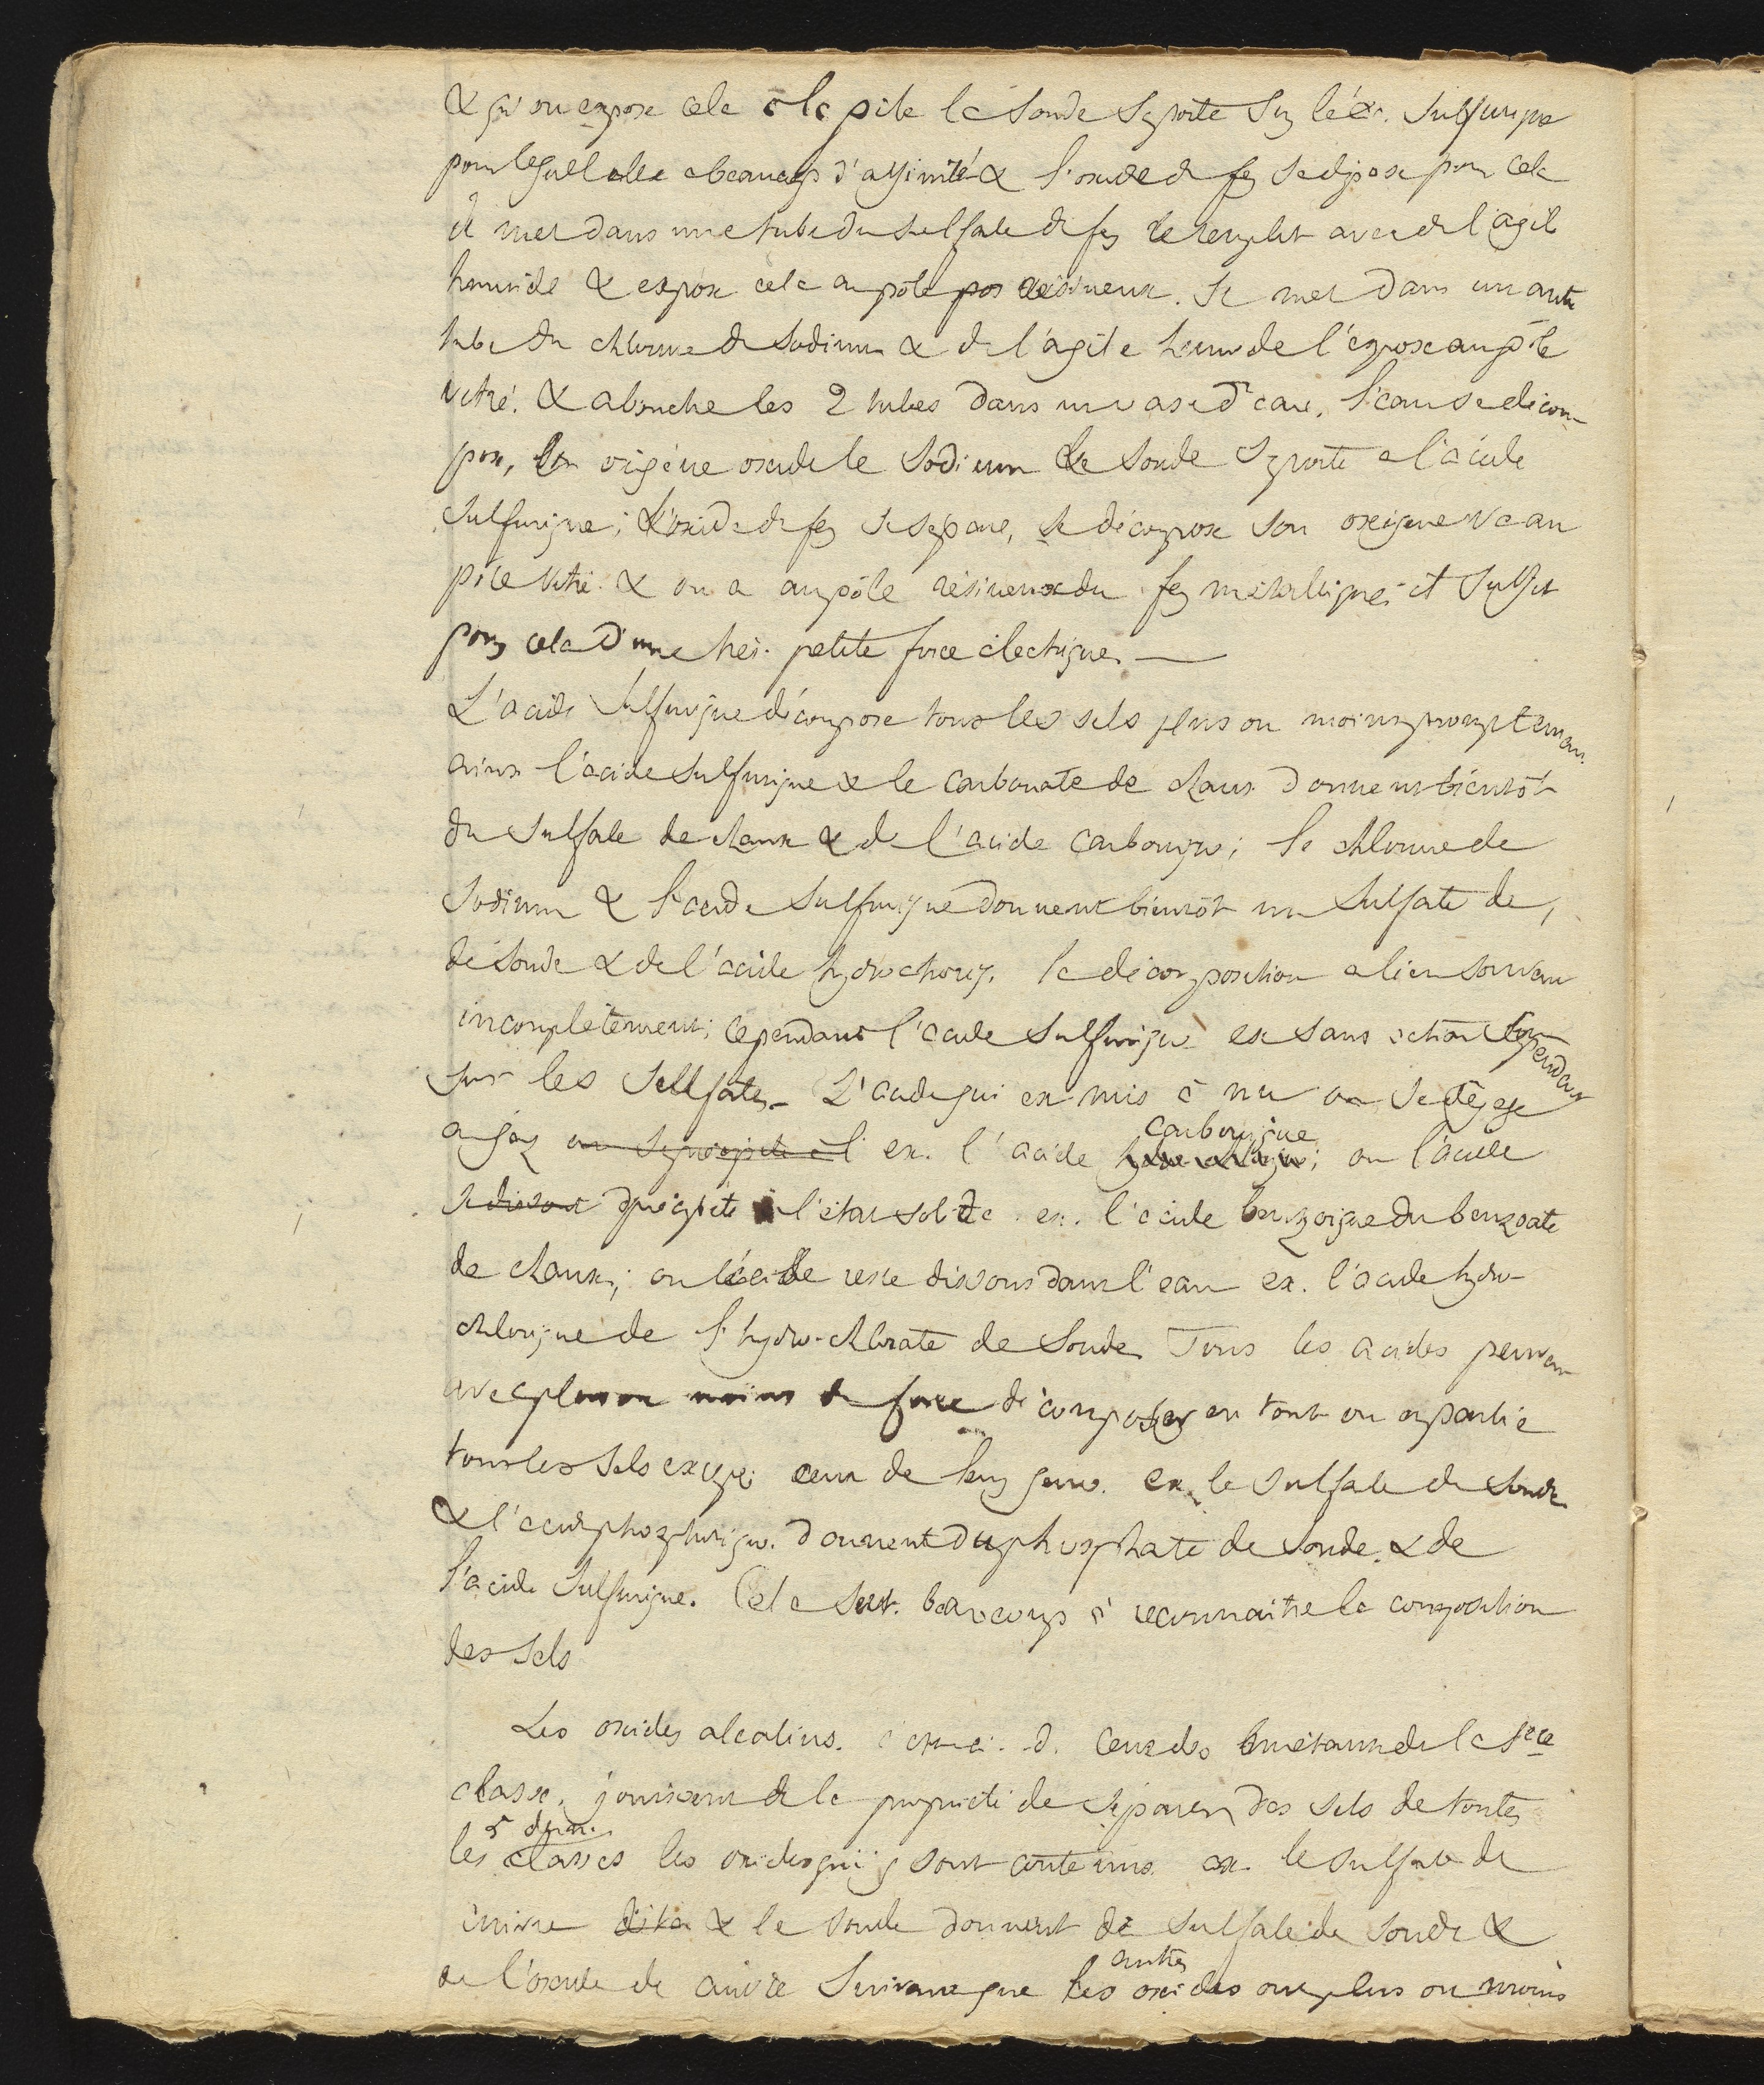 & qu'on expose cela à la pile la soude se porte sur l'ac. sulfurique
pour lequel elle a beaucoup d'affinité & l'oxide de fer se dépose pour cela
il met dans un tube du sulfate de fer le remplit avec de l'agile
humide & expose cela au pôle pos résineux. Il met dans un autre
tube du chlorure de Sodium & de l'agile humide l'expose au pôle
vitré. & abouche les 2 tubes dans un vase d'eau. l'eau se décom-
pose, son oxigène oxide le Sodium la Soude se porte à l'acide
sulfurique; l'oxide de fer se sépare, se décompose son oxigene va au
pôle vitré & on a au pôle résineux du fer métallique et suffit
pour cela d'une très petite force électrique. —
L'acide sulfurique décompose tous les sels plus ou moins promptement
ainsi l'acide sulfurique & le carbonate de chaux donnent bientôt
du sulfate de chaux & de l'acide carbonique; le chlorure de
Sodium & l'acide sulfurique donnent bientôt un sulfate de,
de soude & de l'acide hydrochloriq. la décomposition a lieu souvent
incomplètement; cependant l'acide sulfurique est sans action cependant
sur les sulfates. L'acide qui est mis à nu ou se dégage
en gaz ou se précipite à l ex. l'acide carbonique; ou l'acide
se dissout précipité à l'état solide. ex. l'acide benzoique du benzoate
de chaux; ou l'acide reste dissous dans l'eau ex. l'acide hydro-
chlorique de l'hydro-chlorate de Soude. Tous les acides peuvent
avec plus ou moins de force décomposer en tout ou en partie
tous les sels excepté ceux de leur genre. ex. le sulfate de soude
& l'acide phosphorique. donnent du phosphate de soude & de
l'acide sulfurique. Cela sert beaucoup à reconnaitre la composition
des sels
Les oxides alcalins. c'est-à-d. ceux des métaux de la 1ere
classe, jouissent de la propriété de séparer des sels de toutes
les 5 dern. classes les oxides qui y sont contenus. ex. le sulfate de
cuivre & la soude donnent de sulfate de soude &
de l'oxide de cuivre Suivant que les autres oxides ont plus ou moins